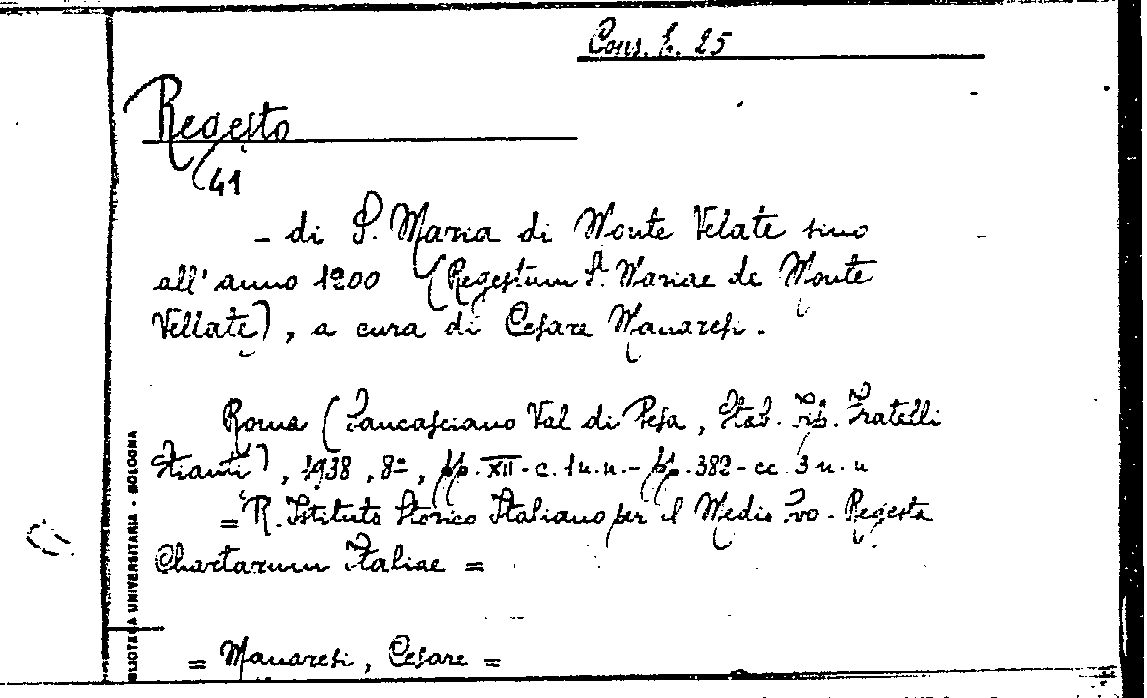 Cons. E. 25
Regesto
41
- di S. Maria di Monte Velate sino
all' anno 1200 (Regestum S. Mariae de Monte
Vellate), a cura di Cesare Manaresi.
Roma (Sancasciano Val di Pesa, Stab. tip. Fratelli
Stianti), 1938, 8º, pp. XII - c. 1 n. n. - pp. 382 - cc. 3 n. n
= R. Istituto Storico Italiano per il Medio Evo - Regesta
Chartarum Italiae =
= Manaresi, Cesare =
BLIOTECA UNIVERSITARIA - BOLOGNA